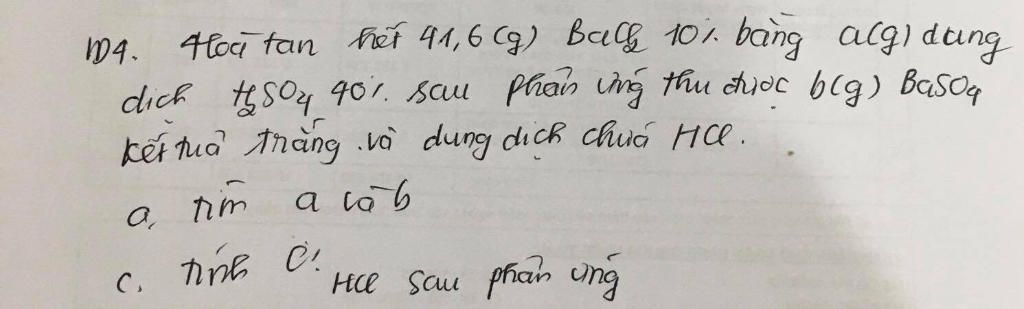 VD4. Hoà tan hết 41,6 (g) BaCl2 10% bằng a(g) dung
dịch H2SO4 40% sau phản ứng thu được b(g) BaSO4
kết tuả trắng và dung dịch chuá HCl.
a, tìm a và b
c, tính C% HCl sau phản ứng